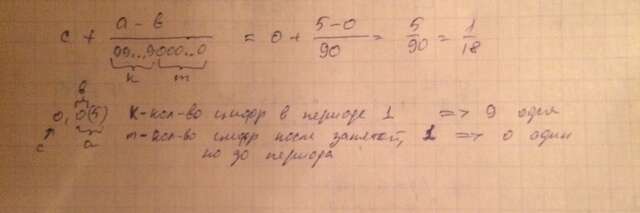 c + a - b / 99...9000...0 = 0 + 5-0 / 90 = 5/90 = 1/18
k m
b
0,0(5) k - кол-во цифр в периоде 1 => 9 одна
c a m - кол-во цифр после запятой, 1 => 0 один
но до периода